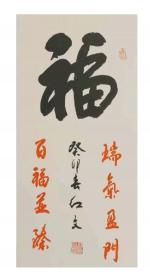 福
瑞氣盈門
癸卯春红文
百福並臻